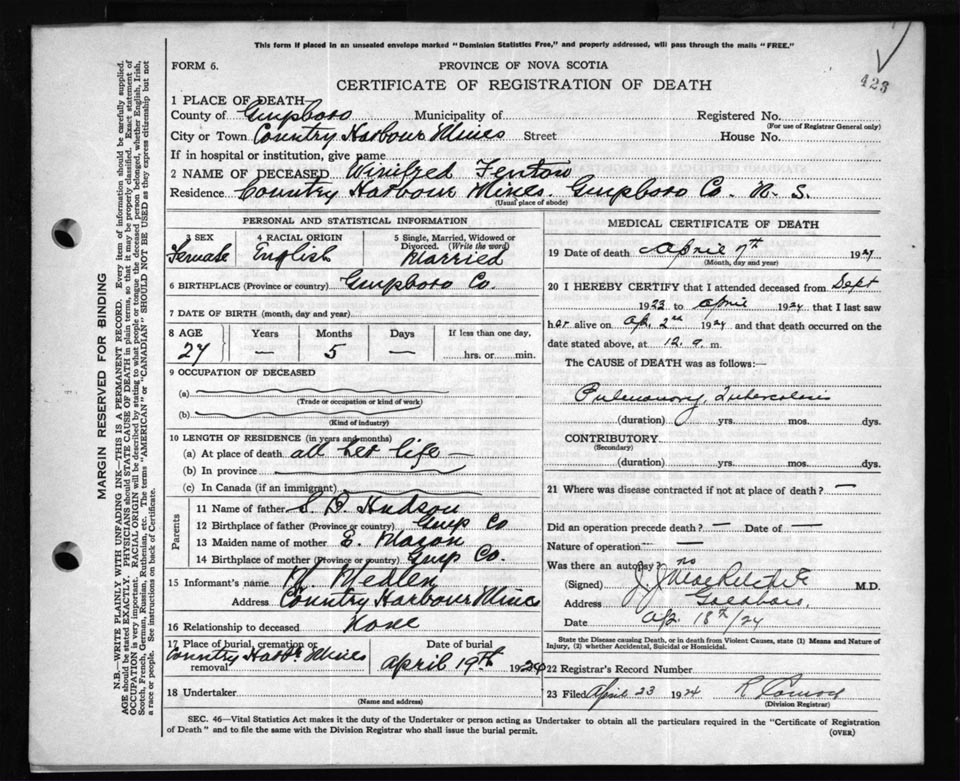 This form if placed in an unsealed envelope marked "Dominion Statistics Free," and properly addressed, will pass through the mails "FREE."
423
FORM 6.
PROVINCE OF NOVA SCOTIA
CERTIFICATE OF REGISTRATION OF DEATH
1 PLACE OF DEATH
County of Guysboro Municipality of Registered No.
(For use of Registrar General only)
City or Town Country Harbour Mines Street House No.
If in hospital or institution, give name
2 NAME OF DECEASED Winifred Fenton
Residence Country Harbour Mines, Guysboro Co. N. S.
(Usual place of abode)
PERSONAL AND STATISTICAL INFORMATION
3 SEX 4 RACIAL ORIGIN 5 Single, Married, Widowed or Divorced. (Write the word)
Female English Married
6 BIRTHPLACE (Province or country) Guysboro Co.
7 DATE OF BIRTH (month, day and year)
8 AGE Years Months Days If less than one day,
27 — 5 — hrs. or min.
9 OCCUPATION OF DECEASED
(a)
(Trade or occupation or kind of work)
(b)
(Kind of industry)
10 LENGTH OF RESIDENCE (in years and months)
(a) At place of death all her life —
(b) In province
(c) In Canada (if an immigrant)
Parents
11 Name of father S. D. Hudson
12 Birthplace of father (Province or country) Guys Co
13 Maiden name of mother E. Mason
14 Birthplace of mother (Province or country) Guys Co.
15 Informant's name
Address Country Harbour Mines
16 Relationship to deceased None
17 Place of burial, cremation or removal Date of burial
Country Harbr Mines April 19th 1924
18 Undertaker
(Name and address)
MEDICAL CERTIFICATE OF DEATH
19 Date of death April 17th 1924
(Month, day and year)
20 I HEREBY CERTIFY that I attended deceased from Sept
1923 to April 1924 that I last saw
her alive on Ap. 2nd 1924 and that death occurred on the
date stated above, at 12. a. m.
The CAUSE of DEATH was as follows:—
Pulmonary Tuberculosis
(duration) yrs. mos. dys.
CONTRIBUTORY
(Secondary)
(duration) yrs. mos. dys.
21 Where was disease contracted if not at place of death? —
Did an operation precede death? — Date of —
Nature of operation —
Was there an autopsy? no
(Signed) J. J. M.D.
Address Goldboro
Date Ap. 18th/24
State the Disease causing Death, or in death from Violent Causes, state (1) Means and Nature of Injury, (2) whether Accidental, Suicidal or Homicidal.
22 Registrar's Record Number
23 Filed April 23 1924
(Division Registrar)
SEC. 46—Vital Statistics Act makes it the duty of the Undertaker or person acting as Undertaker to obtain all the particulars required in the "Certificate of Registration
of Death" and to file the same with the Division Registrar who shall issue the burial permit.
(OVER)
MARGIN RESERVED FOR BINDING
N.B.—WRITE PLAINLY WITH UNFADING INK—THIS IS A PERMANENT RECORD. Every item of information should be carefully supplied.
AGE should be stated EXACTLY. PHYSICIANS should STATE CAUSE OF DEATH in plain terms, so that it may be properly classified. Exact statement of
OCCUPATION is very important. RACIAL ORIGIN will be described by stating to what people or tongue the deceased person belonged, whether English, Irish,
Scotch, French, German, Russian, Ruthenian, etc. The terms "AMERICAN" or "CANADIAN" SHOULD NOT BE USED as they express citizenship but not
a race or people. See instructions on back of Certificate.